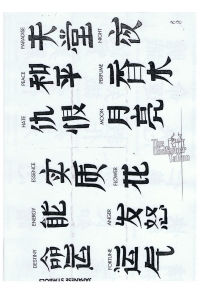 PARADISE
天堂
NIGHT
夜
PEACE
和平
PERFUME
香水
HATE
仇恨
MOON
月亮
ESSENCE
实质
FLOWER
花
ENERGY
能
ANGER
发怒
DESTINY
命运
FORTUNE
运气
JAPANESE SYMBOLS